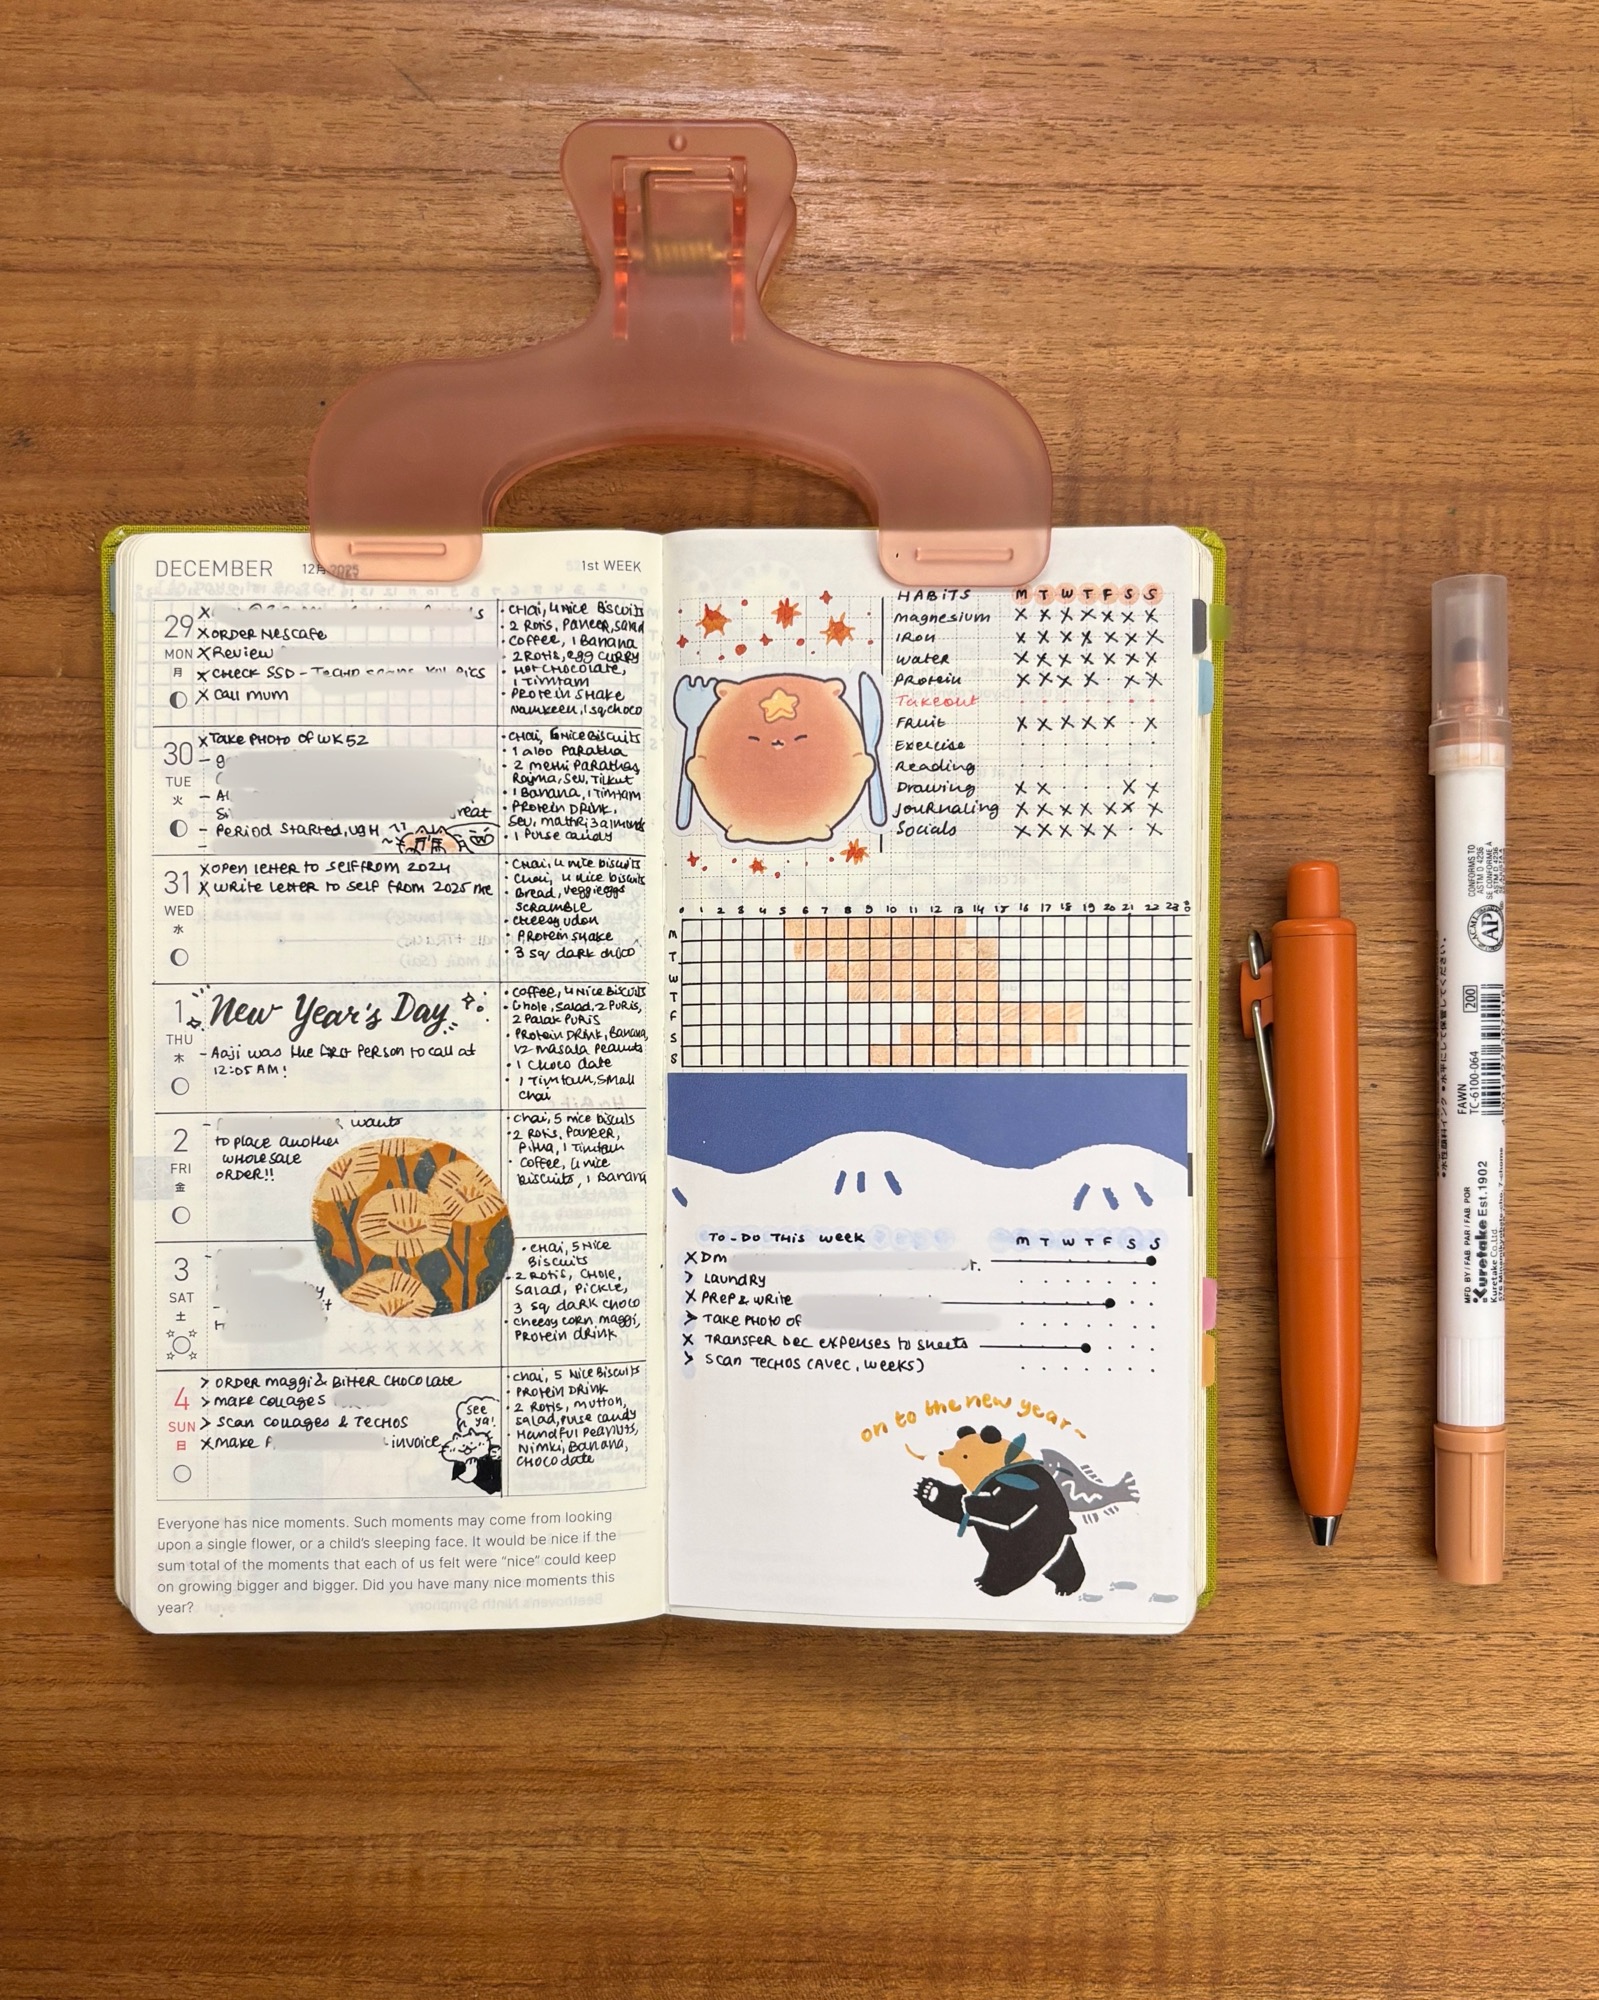 DECEMBER 12月 2025 1st WEEK
29
MON
月
X ORDER NESCAFE
X Review
X CHECK SSD -
X Call mum
• CHAI, 4 NICE BISCUITS
• 2 ROTIS, PANEER, SALAD
• COFFEE, 1 BANANA
• 2 ROTIS, EGG CURRY
• HOT CHOCOLATE,
1 TIMTAM
• PROTEIN SHAKE
NAMKEEN, 1 SQ CHOCO
30
TUE
火
X TAKE PHOTO OF WK 52
- PERIOD STARTED, UGH
• CHAI, 6 NICE BISCUITS
• 1 ALOO PARATHA
• 2 METHI PARATHAS,
RAJMA, SEV, TILKUT
• 1 BANANA, 1 TIMTAM
• PROTEIN DRINK,
SEV, MATHRI, 3 ALMONDS
• 1 PULSE CANDY
31
WED
水
X OPEN LETTER TO SELF FROM 2024
X WRITE LETTER TO SELF FROM 2025 ME
• CHAI, 4 NICE BISCUITS
• CHAI, 4 NICE BISCUITS
• BREAD, VEGGIE EGGS
SCRAMBLE
• CHEESY UDON
• PROTEIN SHAKE
• 3 SQ DARK CHOCO
1
THU
木
New Year's Day
- Aaji was the first person to call at
12:05 AM!
• COFFEE, 4 NICE BISCUITS
• CHOLE, SALAD, 2 PURIS,
2 PALAK PURIS
• PROTEIN DRINK, BANANA,
1/2 MASALA PEANUTS
• 1 CHOCO DATE
• 1 TIMTAM, SMALL
CHAI
2
FRI
金
wants
to place another
wholesale
order!!
• CHAI, 5 NICE BISCUITS
• 2 ROTIS, PANEER,
PITHA, 1 TIMTAM
• COFFEE, 4 NICE
BISCUITS, 1 BANANA
3
SAT
土
• CHAI, 5 NICE
BISCUITS
• 2 ROTIS, CHOLE,
SALAD, PICKLE,
3 SQ DARK CHOCO
• CHEESY CORN MAGGI,
PROTEIN DRINK
4
SUN
日
> ORDER MAGGI & BITTER CHOCOLATE
> MAKE COLLAGES
> SCAN COLLAGES & TECHOS
X MAKE INVOICE
see
ya!
• CHAI, 5 NICE BISCUITS
• PROTEIN DRINK
• 2 ROTIS, MUTTON,
SALAD, PULSE CANDY
• HANDFUL PEANUTS,
NIMKI, BANANA,
CHOCO DATE
Everyone has nice moments. Such moments may come from looking
upon a single flower, or a child's sleeping face. It would be nice if the
sum total of the moments that each of us felt were "nice" could keep
on growing bigger and bigger. Did you have many nice moments this
year?
HABITS M T W T F S S
Magnesium X X X X X X X
Iron X X X X X X X
Water X X X X X X X
Protein X X X X · X X
Takeout
Fruit X X X X X · X
Exercise
Reading
Drawing X X · · · X X
Journaling X X X X X X X
Socials X X X X X · X
0 1 2 3 4 5 6 7 8 9 10 11 12 13 14 15 16 17 18 19 20 21 22 23 0
M
T
W
T
F
S
S
TO-DO THIS WEEK M T W T F S S
X DM
> LAUNDRY
X PREP & WRITE
> TAKE PHOTO OF
X TRANSFER DEC EXPENSES TO SHEETS
> SCAN TECHOS (AVEC, WEEKS)
on to the new year~
CONFORMS TO
ASTM D 4236
AP
200
FAWN
TC-6100-064
MFD. BY / FAB. PAR / FAB. POR
Kuretake Est. 1902
Kuretake Co., Ltd.